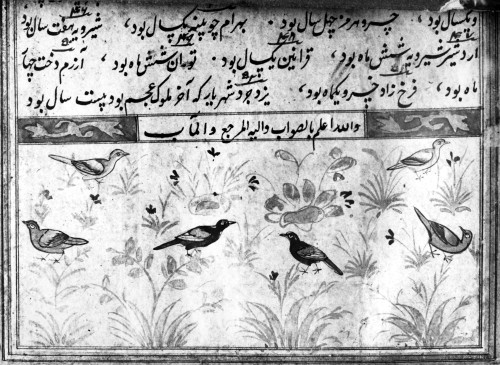 و یکسال بود، خسرو هرمز چهل سال بود بهرام چوبینه یکسال بود، شیرویه هفت سال بود
اردشیر شیرویه شش ماه بود، قرایین یکسال بود توران شش ماه بود، آزرم دخت چهار
ماه بود، فرخ زاد خسرو یکماه بود، یزدجرد شهریار که آخر ملوک عجم بود بیست سال بود
والله اعلم بالصواب والیه المرجع والمآب